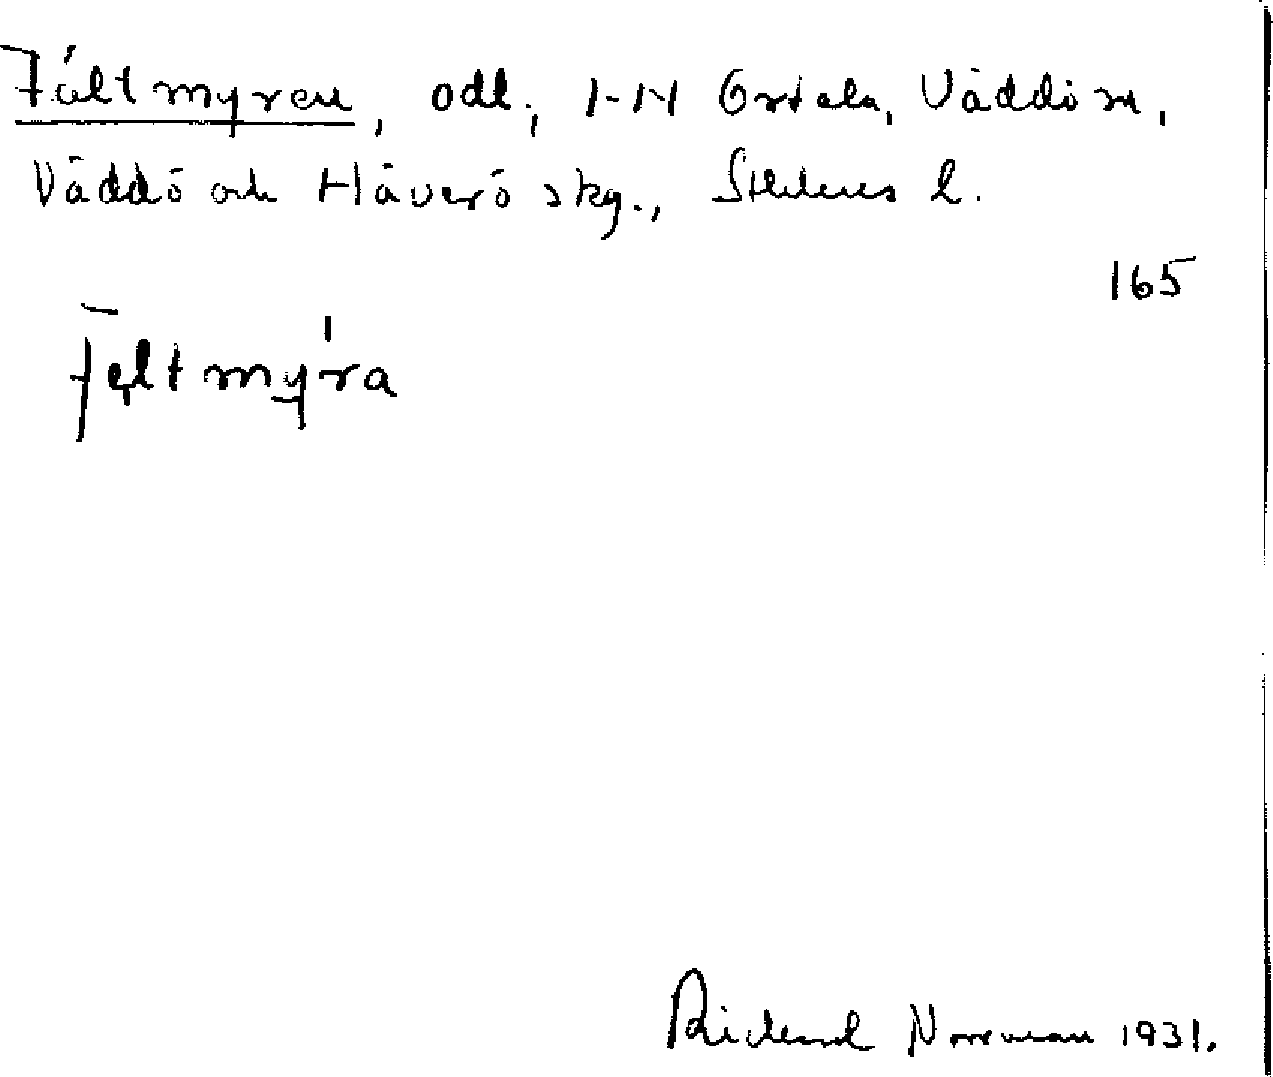 Fältmyren, odl., 1-14 Ortala, Väddö sn,
Väddö och Häverö skg., Sthlms l.
165
fęltmy̍ra
Rickard Norrman 1931.